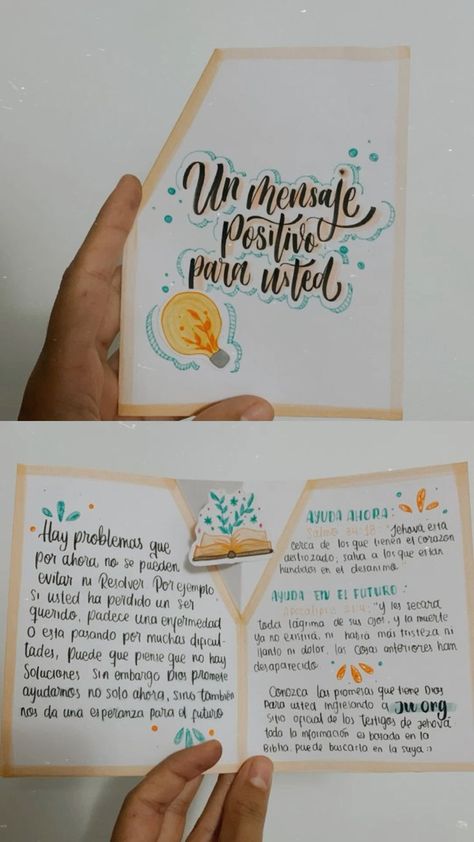 Un mensaje
positivo
para usted
Hay problemas que
por ahora, no se pueden
evitar ni Resolver. Por ejemplo
si usted ha perdido un ser
querido, padece una enfermedad
O esta pasando por muchas dificul-
tades, Puede que piense que no hay
Soluciones sin embargo Dios promete
ayudarnos no solo ahora, sino también
nos da una esperanza para el futuro
AYUDA AHORA:
Salmo 34:18: "Jehová está
cerca de los que tienen el corazón
destrozado; salva a los que están
hundidos en el desánimo."
AYUDA EN EL FUTURO:
Apocalipsis 21:4: "Y les secará
toda lágrima de sus ojos, y la muerte
ya no existirá, ni habrá más tristeza, ni
llanto ni dolor, las cosas anteriores han
desaparecido.
Conozca las promesas que tiene Dios
Para usted ingresando a JW.ORG
Sitio oficial de los testigos de Jehová
toda la información es basada en la
Biblia, puede buscarlo en la suya :)